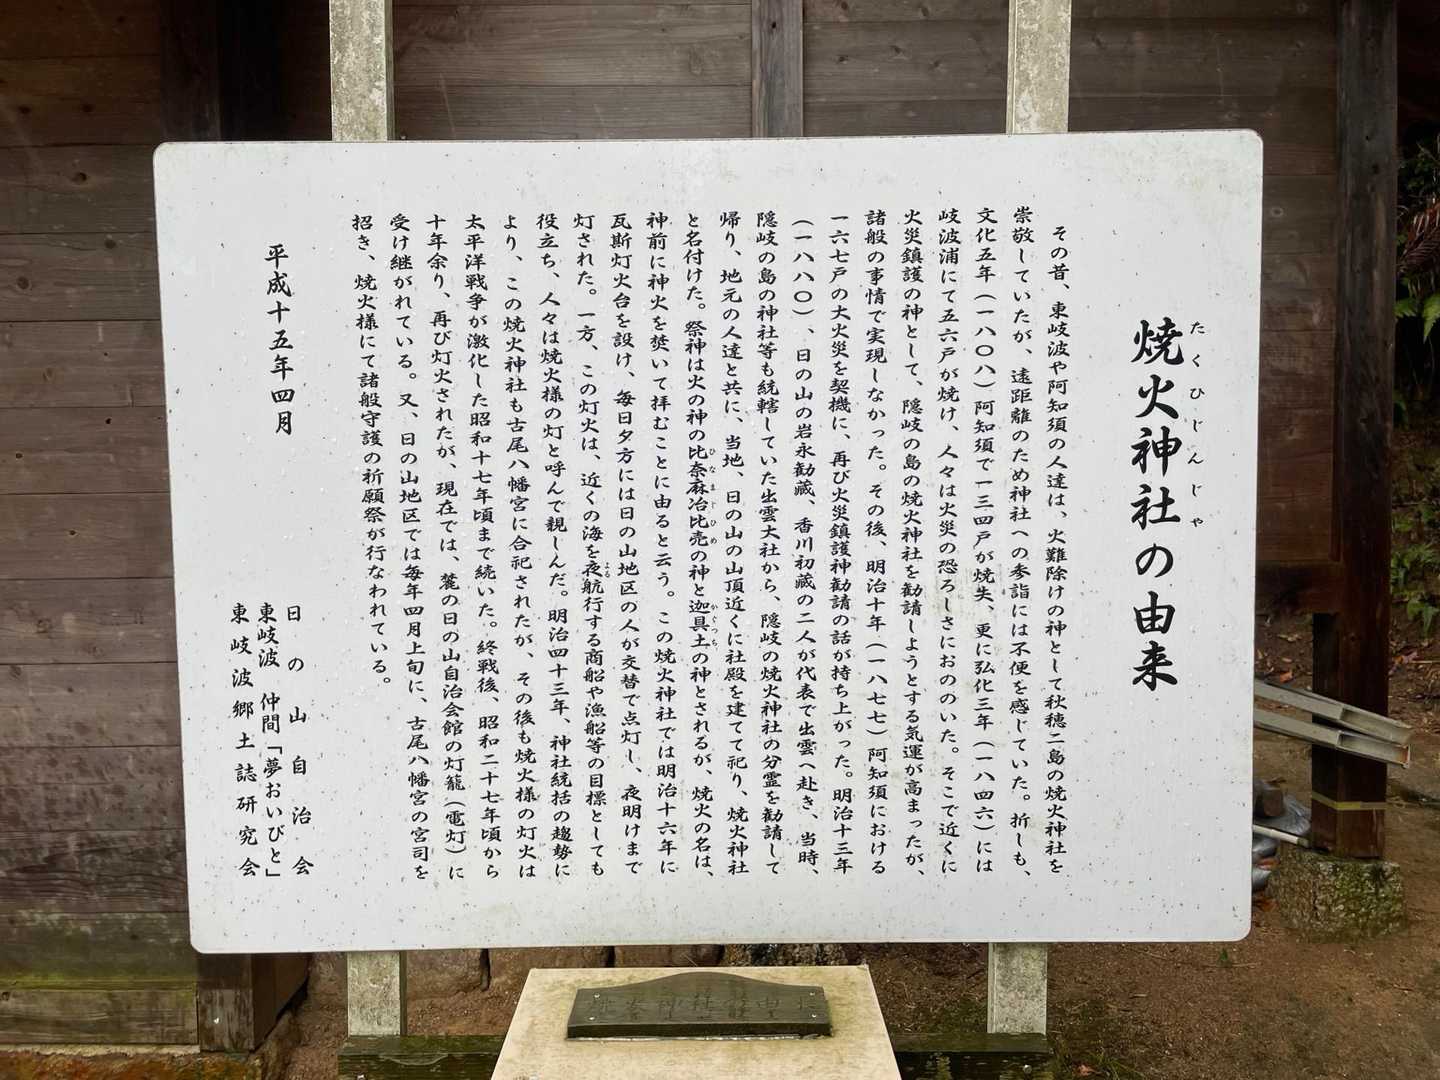 焼火神社の由来
たくひじんじゃ
その昔、東岐波や阿知須の人達は、火難除けの神として秋穂二島の焼火神社を
崇敬していたが、遠距離のため神社への参詣には不便を感じていた。折しも、
文化五年(一八〇八)阿知須で一三四戸が焼失、更に弘化三年(一八四六)には
岐波浦にて五六戸が焼け、人々は火災の恐ろしさにおののいた。そこで近くに
火災鎮護の神として、隠岐の島の焼火神社を勧請しようとする気運が高まったが、
諸般の事情で実現しなかった。その後、明治十年(一八七七)阿知須における
一六七戸の大火災を契機に、再び火災鎮護神勧請の話が持ち上がった。明治十三年
(一八八〇)、日の山の岩永勘蔵、香川初蔵の二人が代表で出雲へ赴き、当時、
隠岐の島の神社等も統轄していた出雲大社から、隠岐の焼火神社の分霊を勧請して
帰り、地元の人達と共に、当地、日の山の山頂近くに社殿を建てて祀り、焼火神社
と名付けた。祭神は火の神の比奈麻治比売の神と迦具土の神とされるが、焼火の名は、
ひなまじひめ
かぐつち
神前に神火を焚いて拝むことに由ると云う。この焼火神社では明治十六年に
瓦斯灯火台を設け、毎日夕方には日の山地区の人が交替で点灯し、夜明けまで
灯された。一方、この灯火は、近くの海を夜航行する商船や漁船等の目標としても
よる
役立ち、人々は焼火様の灯と呼んで親しんだ。明治四十三年、神社統括の趨勢に
より、この焼火神社も古尾八幡宮に合祀されたが、その後も焼火様の灯火は
太平洋戦争が激化した昭和十七年頃まで続いた。終戦後、昭和二十七年頃から
十年余り、再び灯火されたが、現在では、麓の日の山自治会館の灯籠(電灯)に
受け継がれている。又、日の山地区では毎年四月上旬に、古尾八幡宮の宮司を
招き、焼火様にて諸般守護の祈願祭が行なわれている。
平成十五年四月
日の山自治会
東岐波 仲間「夢おいびと」
東岐波郷土誌研究会